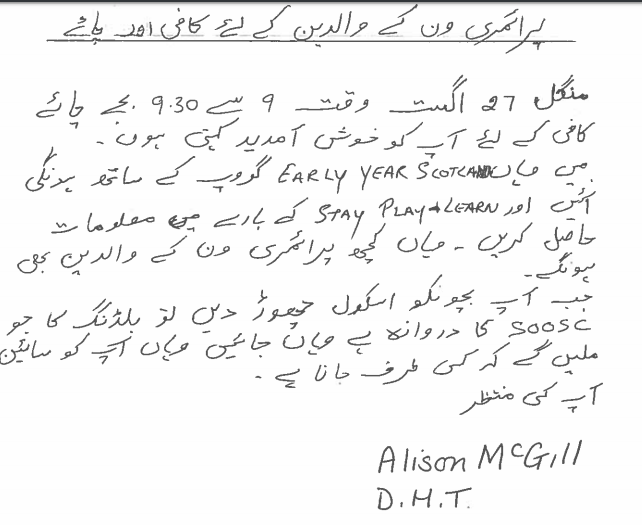 پرائمری ون کے والدین کے لئے کافی اور چائے
منگل 27 اگست وقت 9 سے 9.30 بجے چائے
کافی کے لئے آپ کو خوش آمدید کہتی ہوں۔
میں وہاں EARLY YEAR SCOTLAND گروپ کے ساتھ ہونگی
آئیں اور STAY PLAY & LEARN کے بارے میں معلومات
حاصل کریں۔ وہاں کچھ پرائمری ون کے والدین بھی
ہونگے۔
جب آپ بچونکو اسکول چھوڑ دیں تو بلڈنگ کا جو
SOOSC کا دروازہ ہے وہاں جائیں وہاں آپ کو سائین
ملیں گے کہ کس طرف جانا ہے۔
آپ کی منتظر
Alison McGill
D.H.T.